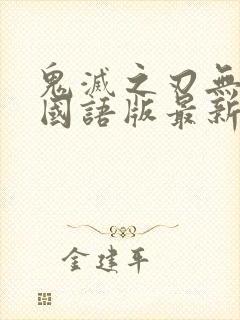 鬼滅之刃無
國語版最新
金建平